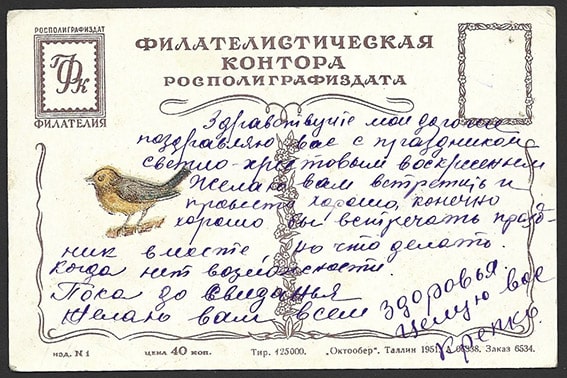 РОСПОЛИГРАФИЗДАТ
ФК
ФИЛАТЕЛИЯ
ФИЛАТЕЛИСТИЧЕСКАЯ
КОНТОРА
РОСПОЛИГРАФИЗДАТА
Здравствуйте мои дорогие
поздравляю вас с праздником
светло-христовым воскресеньем
Желаю вам встретить и
провести хорошо, конечно
хорошо бы встречать празд-
ник вместе, но что делать.
Когда нит возможности.
Пока до свиданья
Желаю вам всем здоровья
целую вас
крепко.
изд. N 1 ЦЕНА 40 коп. Тир. 125000. „Октообер", Таллин 1951. Заказ 6534.